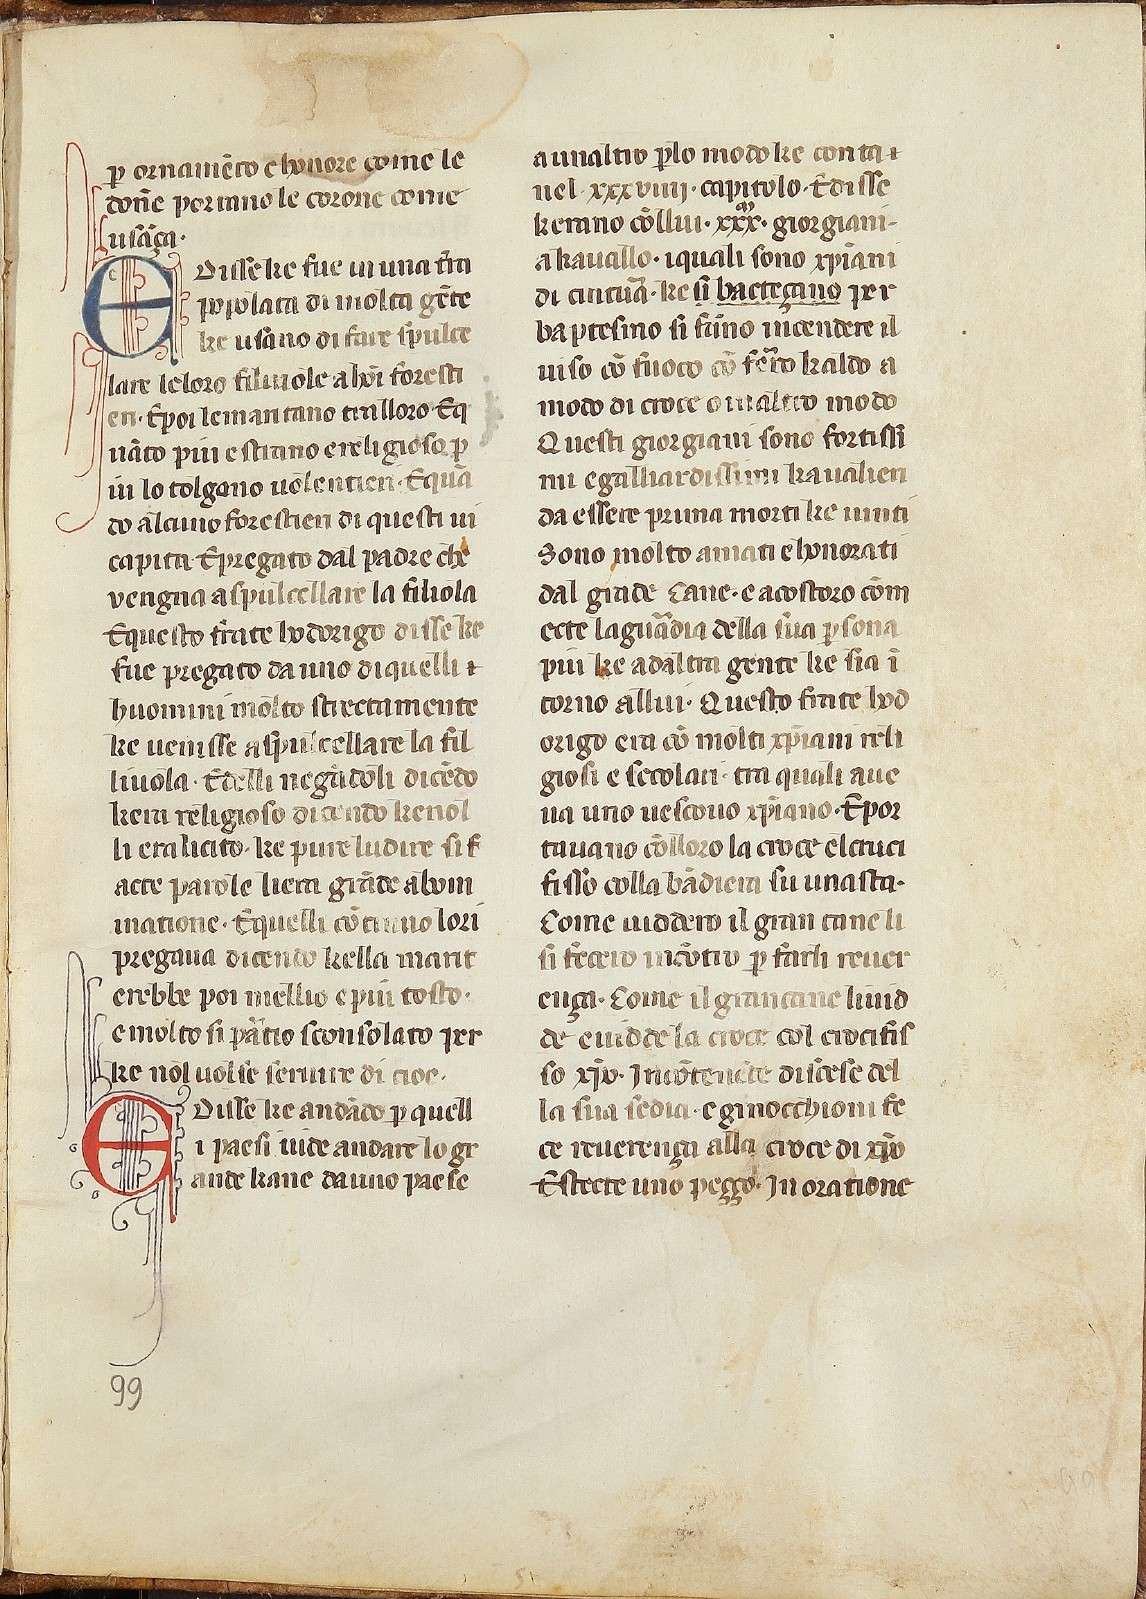 p̲ ornamẽto e honore come le
doñe portano le corone come
usãça·
E Disse ke fue in una t̃ra
popolata di molta gẽte
ke usano di fare spulce
lare le loro filiuole a hoĩ foresti
eri· E poi le mantano tra lloro· E q
uãto piu e strano e religioso p̲
iu lo tolgono uolentieri· E quã
do alcuno forestieri di questi ui
capita· E pregato dal padre che
vengna a spulcellare la filiola
E questo frate lodorigo disse ke
fue pregato da uno di quelli
huomini molto strectamente
ke uenisse a spulcellare la fil
liuola· Ed elli negãdoli dicẽdo
kera religioso dicendo ke nol
li era licito· ke pure ludire si f
acte parole liera grãde abom
inatione· E quelli cõtinuo lori
pregaua dicendo kella marit
erebbe poi mellio e piu tosto·
e molto si partio sconsolato per
ke nol uolse seruire di cioe·
E Disse ke andãdo p̲ quell
i paesi uide andare lo gr
ande kane da uno paese
a unaltro p̲lo modo ke conta
nel· xxxviiij· capitolo· E disse
kerano cõllui· xxx.m· giorgiani·
a kauallo· i quali sono xp̃iani
di cintura· ke si bacteçano per
baptesmo si fãno incendere il
uiso cõ fuoco cõ ferro kaldo a
modo di croce o in altro modo
Questi giorgiani sono fortissi
mi e galliardissimi kaualieri
da essere prima morti ke uinti
Sono molto amati e honorati
dal grãde Cane· e a costoro cõm
ecte la guardia della sua p̲sona
piu ke ad altra gente ke sia ĩ
torno allui· Questo frate lod
origo era cõ molti xp̃iani reli
giosi e secolari· tra quali aue
ua uno uescouo xp̃iano· E por
tauano cõlloro la croce el cruci
fisso colla bãdiera su unasta·
Come uiddero il gran cane li
si fecero incõtro p̲ farli reuer
ença· Come il gran cane li uid
de e uidde la croce col crocifis
so xp̃o· Incõtenẽte discese del
la sua sedia· e ginocchioni fe
ce reuerença alla croce di xp̃o
E stecte uno peçço· In oratione
99